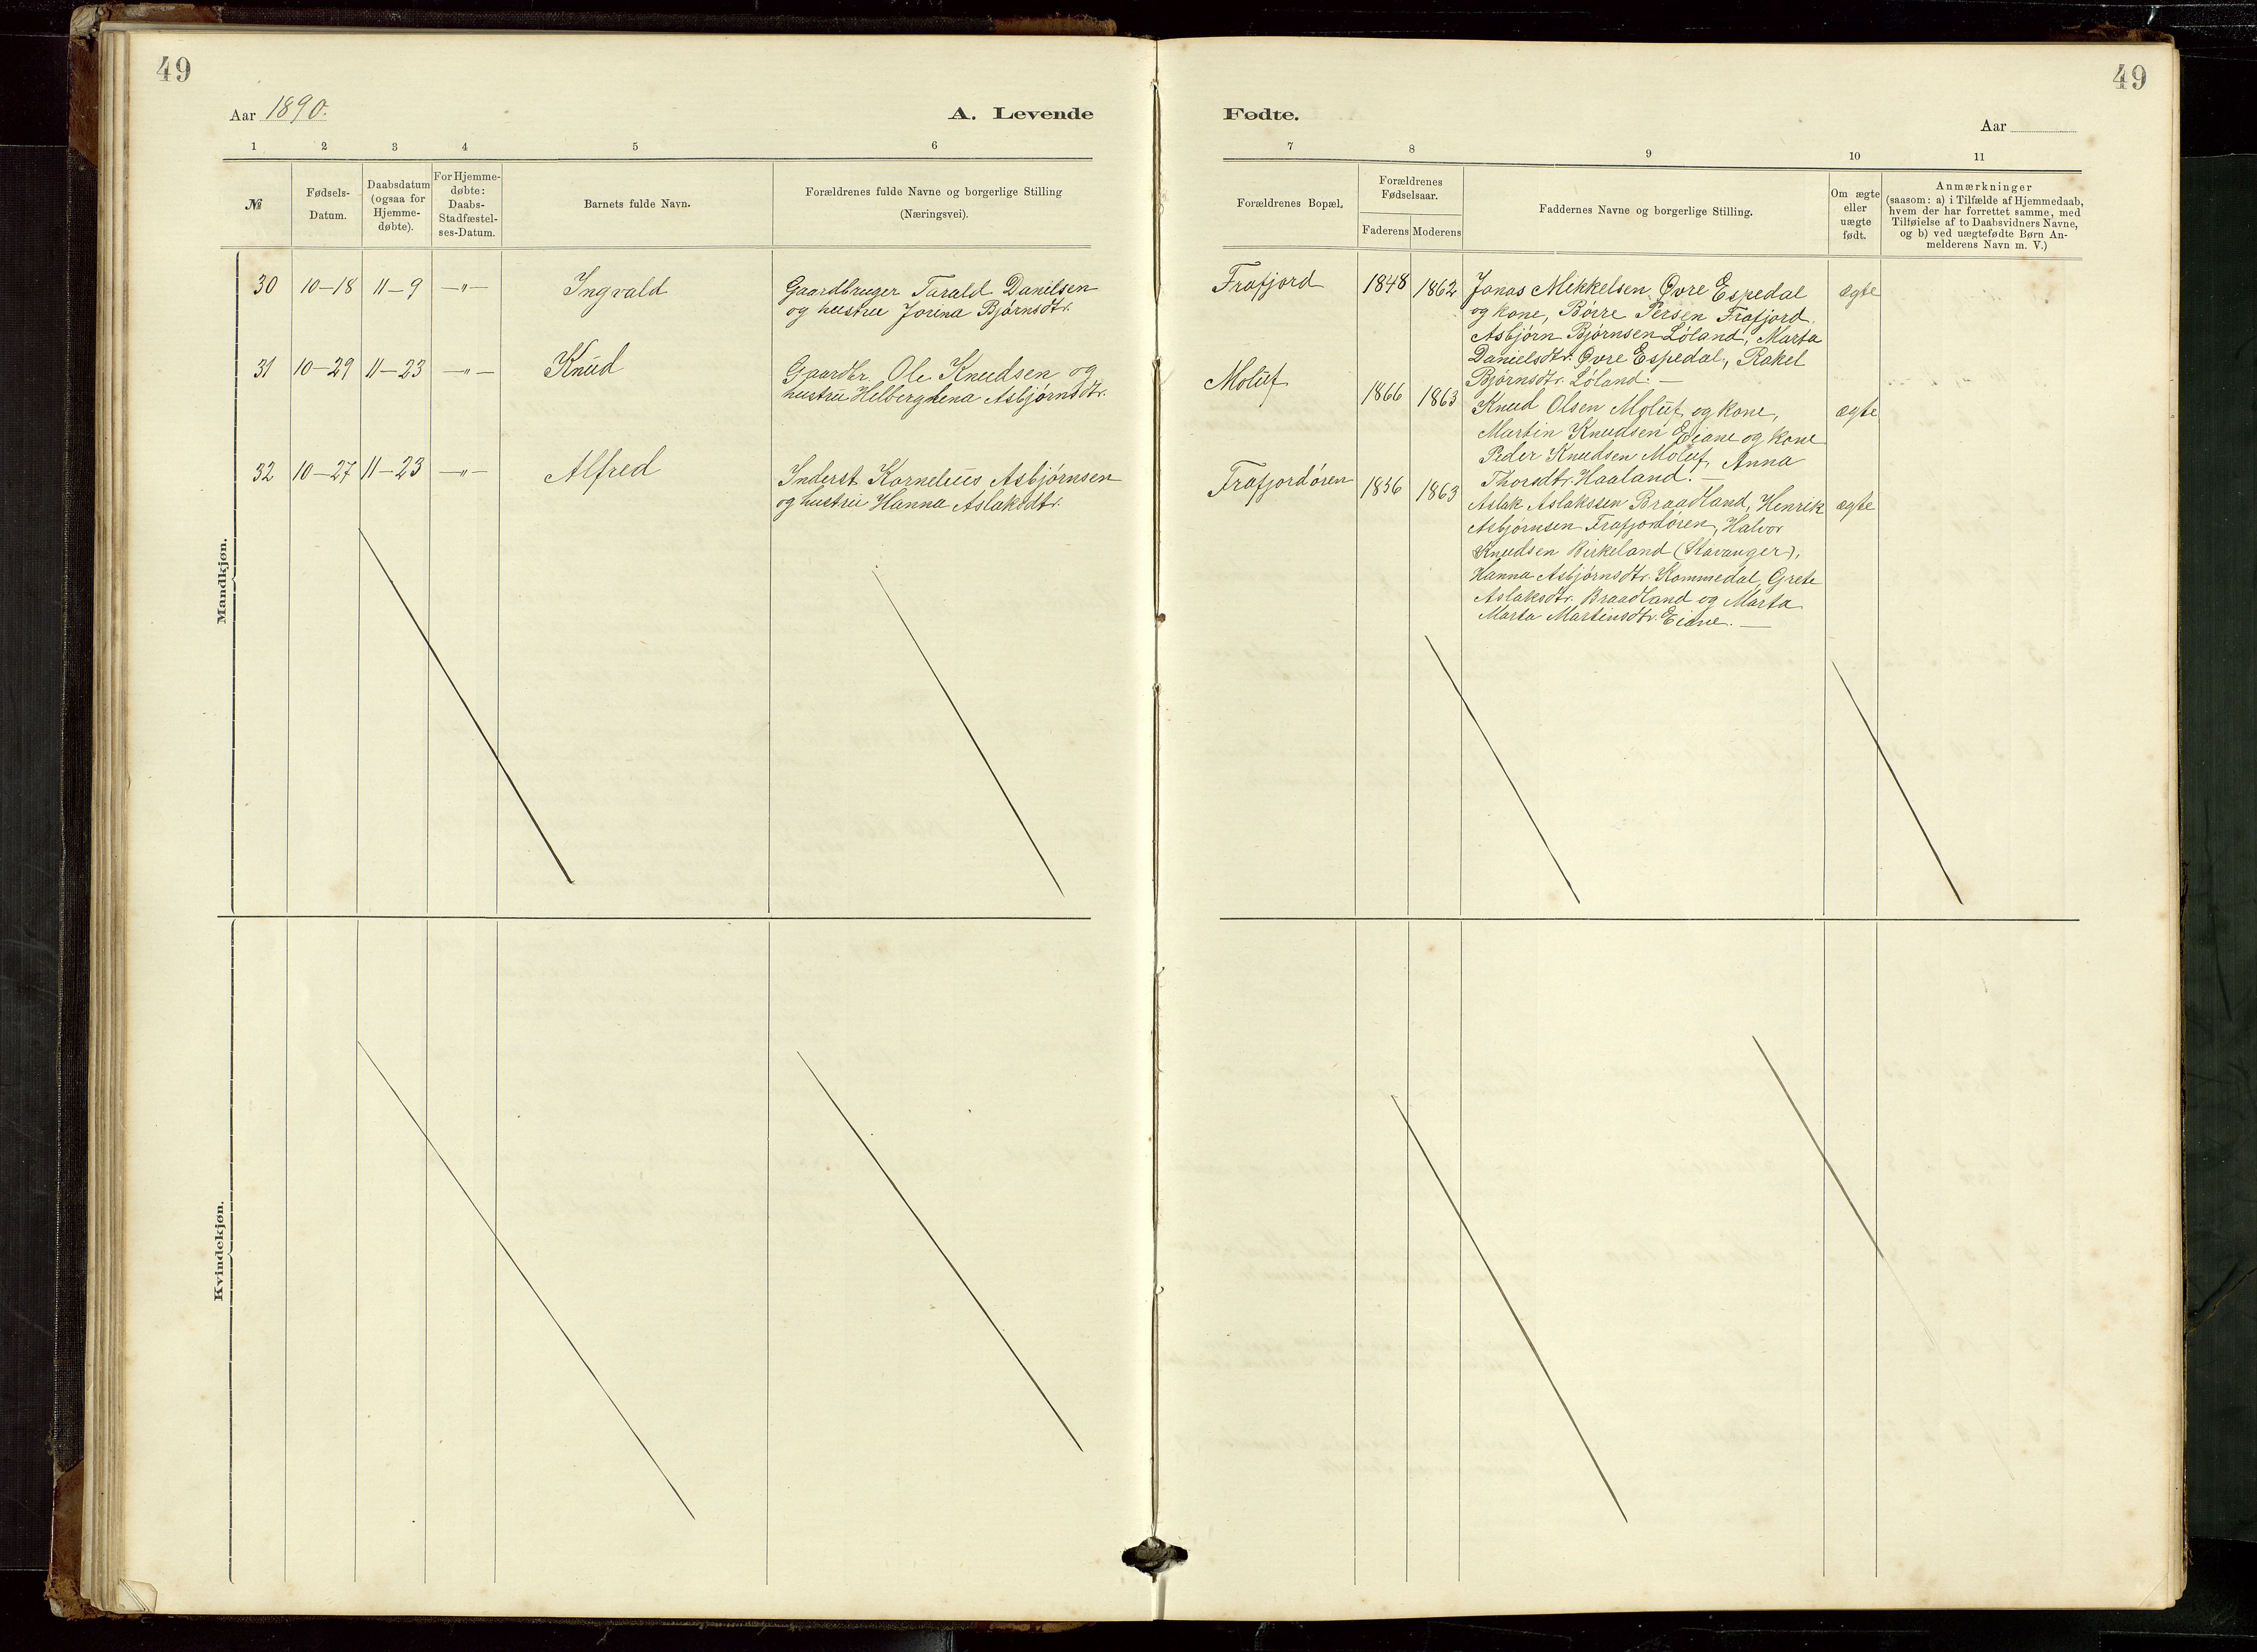 49
49
Aar 1890.
A. Levende
Fødte.
Aar
1 2 3 4 5 6
7 8 9 10 11
№
Fødsels-
Datum.
Daabsdatum
(ogsaa for
Hjemme-
døbte).
For Hjemme-
døbte:
Daabs-
Stadfæstel-
ses-Datum.
Barnets fulde Navn.
Forældrenes fulde Navne og borgerlige Stilling
(Næringsvei).
Forældrenes Bopæl.
Forældrenes
Fødselsaar.
Faderens Moderens
Faddernes Navne og borgerlige Stilling.
Om ægte
eller
uægte
født.
Anmærkninger
(saasom: a) i Tilfælde af Hjemmedaab,
hvem der har forrettet samme, med
Tilføielse af to Daabsvidners Navne,
og b) ved uægtefødte Børn An-
melderens Navn m. V.)
Mandkjøn.
30 10-18 11-9 -"- Ingvald
Gaardbruger Tarald Danilsen
og hustru Jorina Bjørnsdtr.
Frafjord 1848 1862
Jonas Mikkelsen Øvre Espedal
og kone, Børre Persen Frafjord,
Asbjørn Bjørnsen Løland, Marta
Danielsdtr. Øvre Espedal, Rakel
Bjørnsdtr. Løland. —
ægte
31 10-29 11-23 -"- Knud
Gaardbr. Ole Knudsen og
hustru Helberghena Asbjørnsdtr.
Moluf 1866 1863
Knud Olsen Moluf og kone,
Martin Knudsen Eiane og kone
Peder Knudsen Moluf, Anna
Thorsdtr. Haaland. —
ægte
32 10-27 11-23 -"- Alfred
Inderst Kornelius Asbjørnsen
og hustru Hanna Aslaksdtr.
Frafjordøren 1856 1863
Aslak Aslaksen Braadland, Henrik
Asbjørnsen Frafjordøren, Halvor
Knudsen Birkeland (Stavanger),
Hanna Asbjørnsdtr. Kommedal, Grete
Aslaksdtr. Braadland og Marta
Marta Martinsdtr. Eiane. —
ægte
Kvindekjøn.